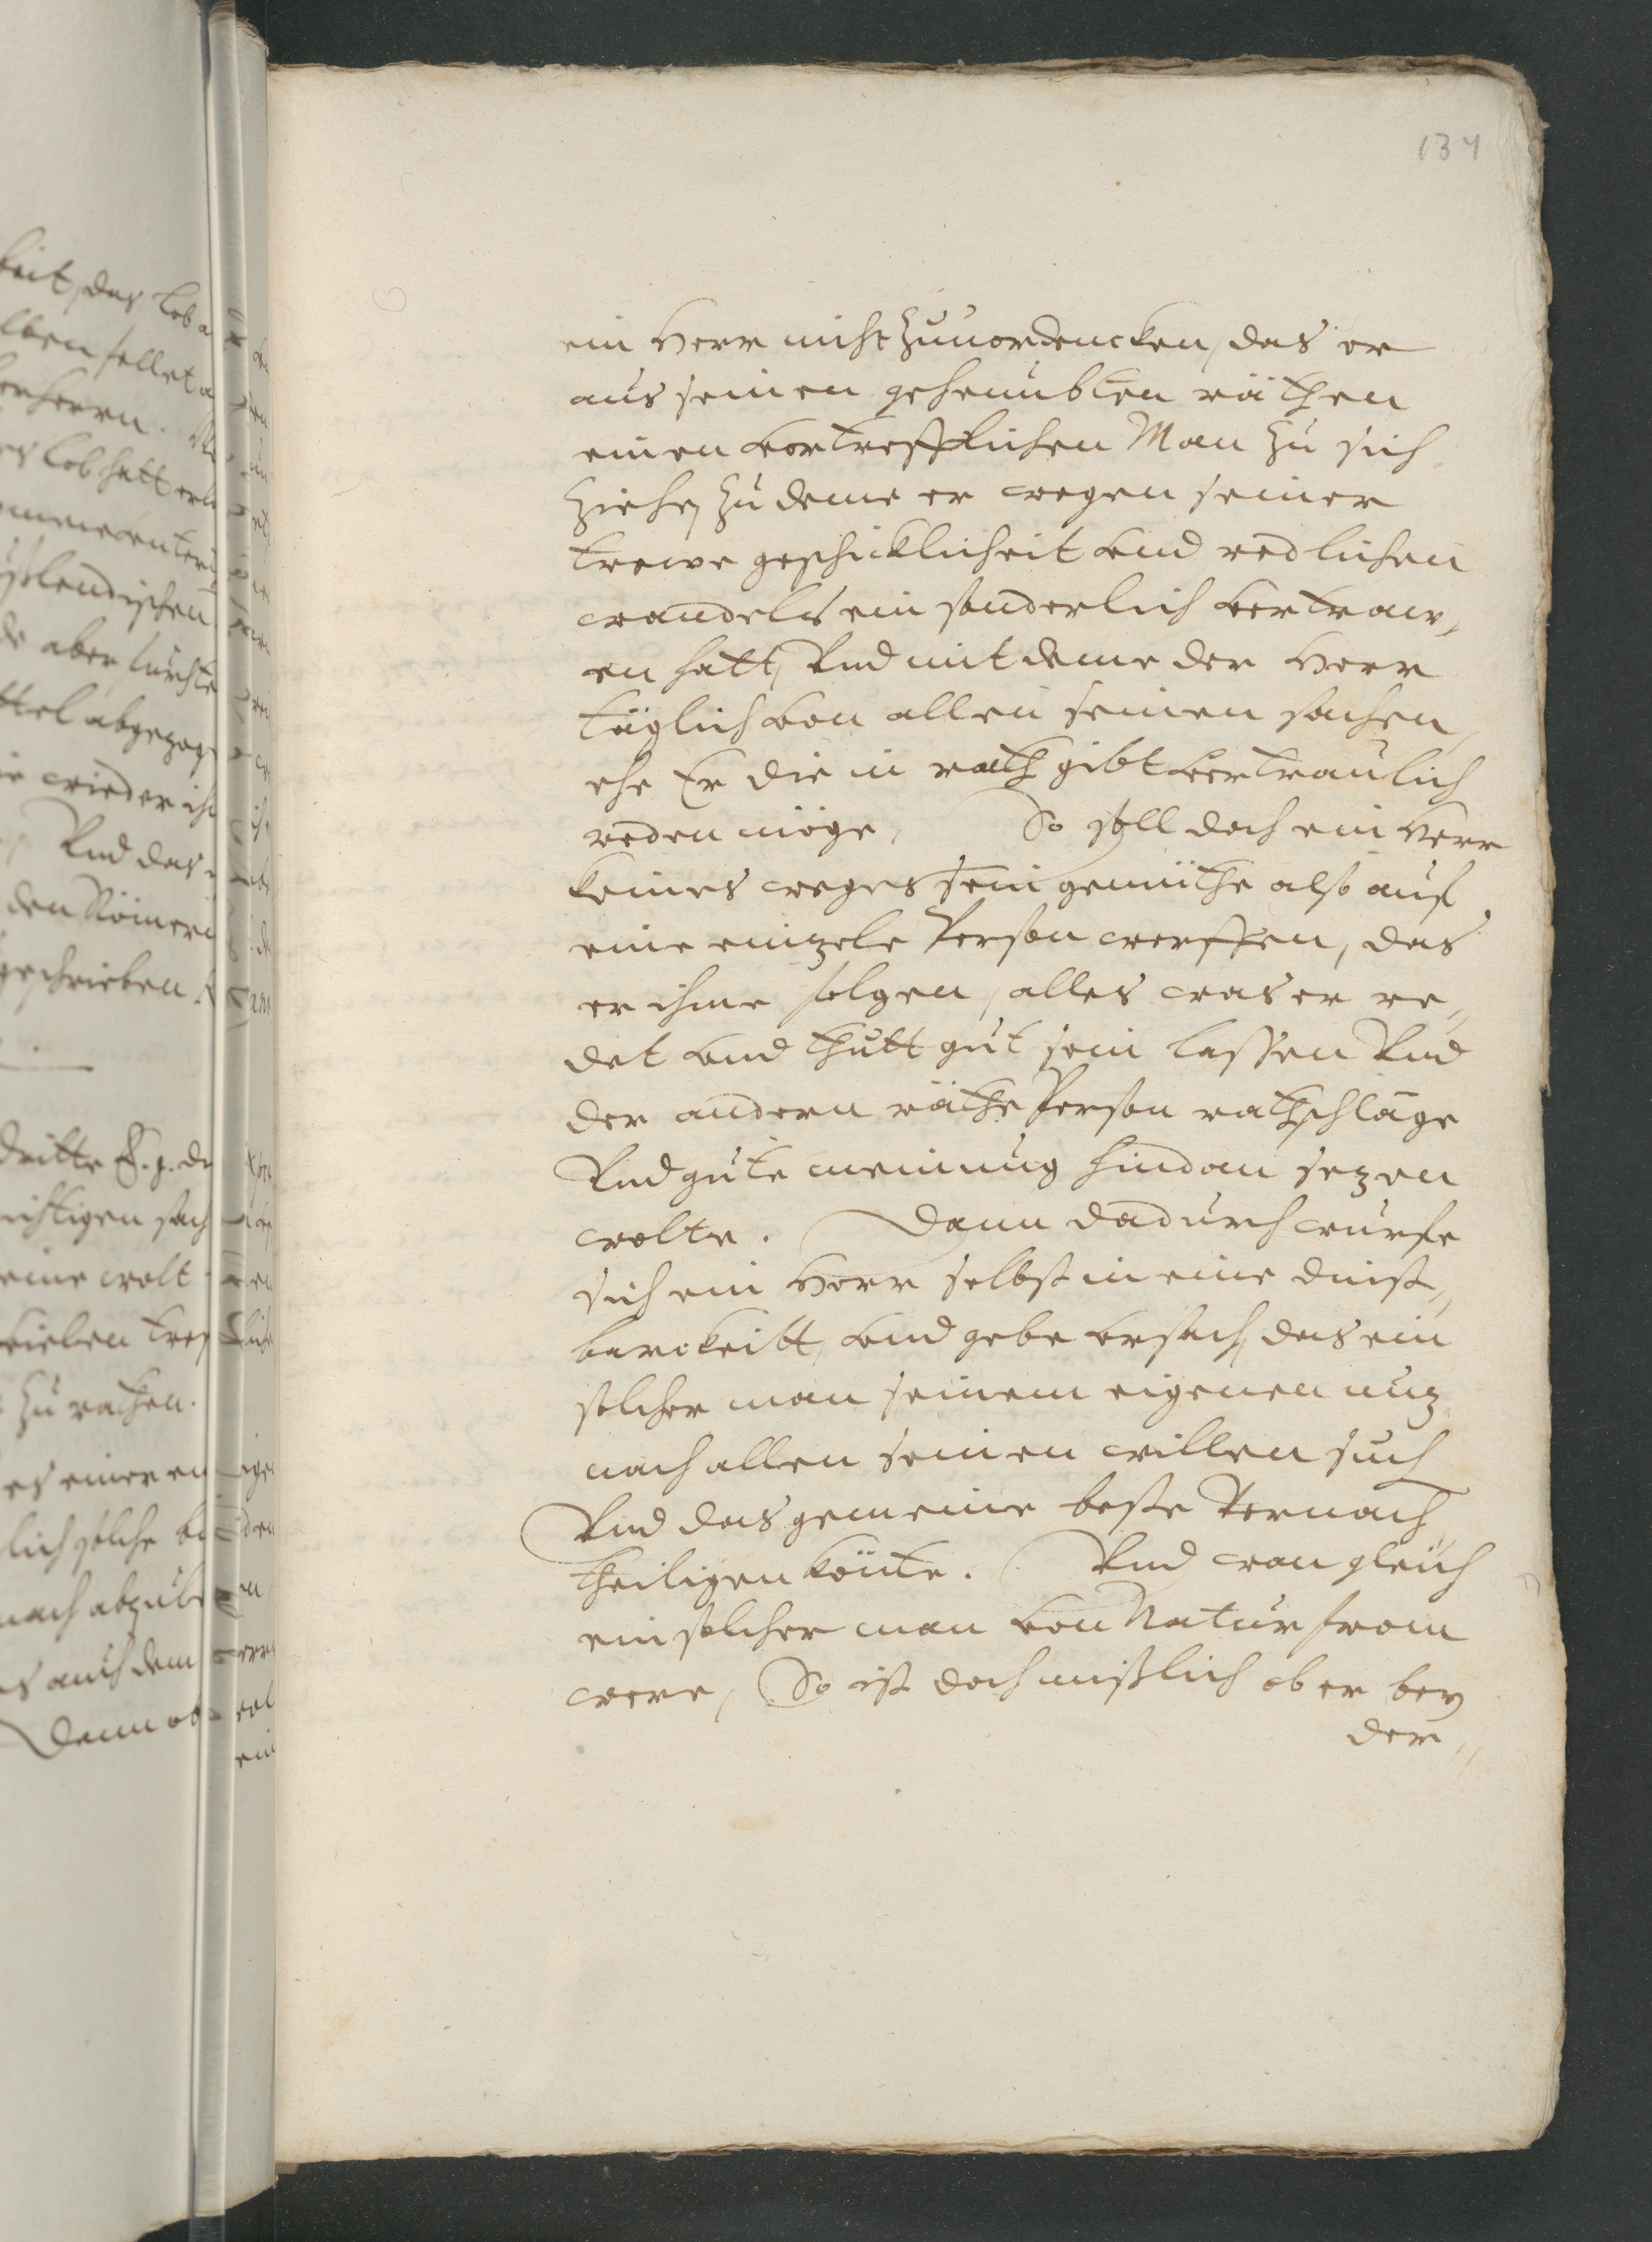 134
ein Herr nicht zuuordencken, das er
aus seinen geheimbten räthen
einen vortrefflichen Man zu sich
ziehe, zu deme er wegen seiner
trewe geschicklicheit vnd redlichen
wandels ein sonderlich vertraw,,
en hatt, Vnd mit deme der Herr
täglich von allen seinen sachen,
ehe Er die in rath gibt vertraulich
reden möge, So soll doch ein Herr
keines weges sein gemüthe also auf
eine einzele Person werffen, das
er ihme folgen, alles was er re,,
det vnd thutt gut sein lassen Vnd
der andern räthe Person rathschläge
Vnd gute meinung hindan sezen
wolte. Dann dadurch würfe
sich ein Herr selbst in eine dinst,,
barckeitt, vnd gebe vrsach, das ein
solcher man seinem eigenen nuz
nach allen seinen willen such
Vnd das gemeine beste Vernach
theiligen könte. Vnd wan gleich
ein solcher man von Natur from
were, So ist doch mißlich ob er bey
der,,